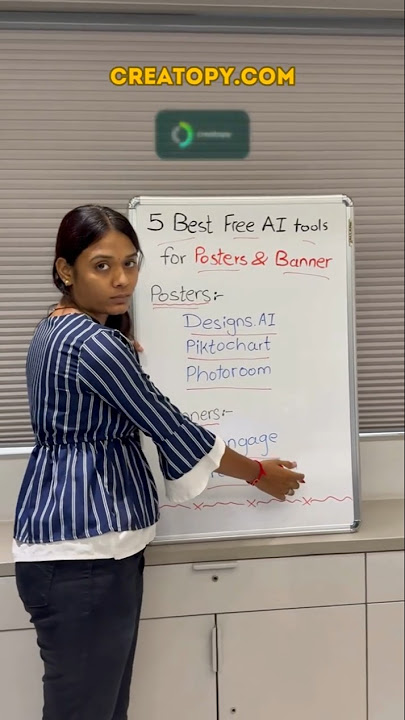 CREATOPY.COM
creatopy
5 Best Free AI tools
for Posters & Banner
Posters:-
Designs.AI
Piktochart
Photoroom
ners:-
ngage